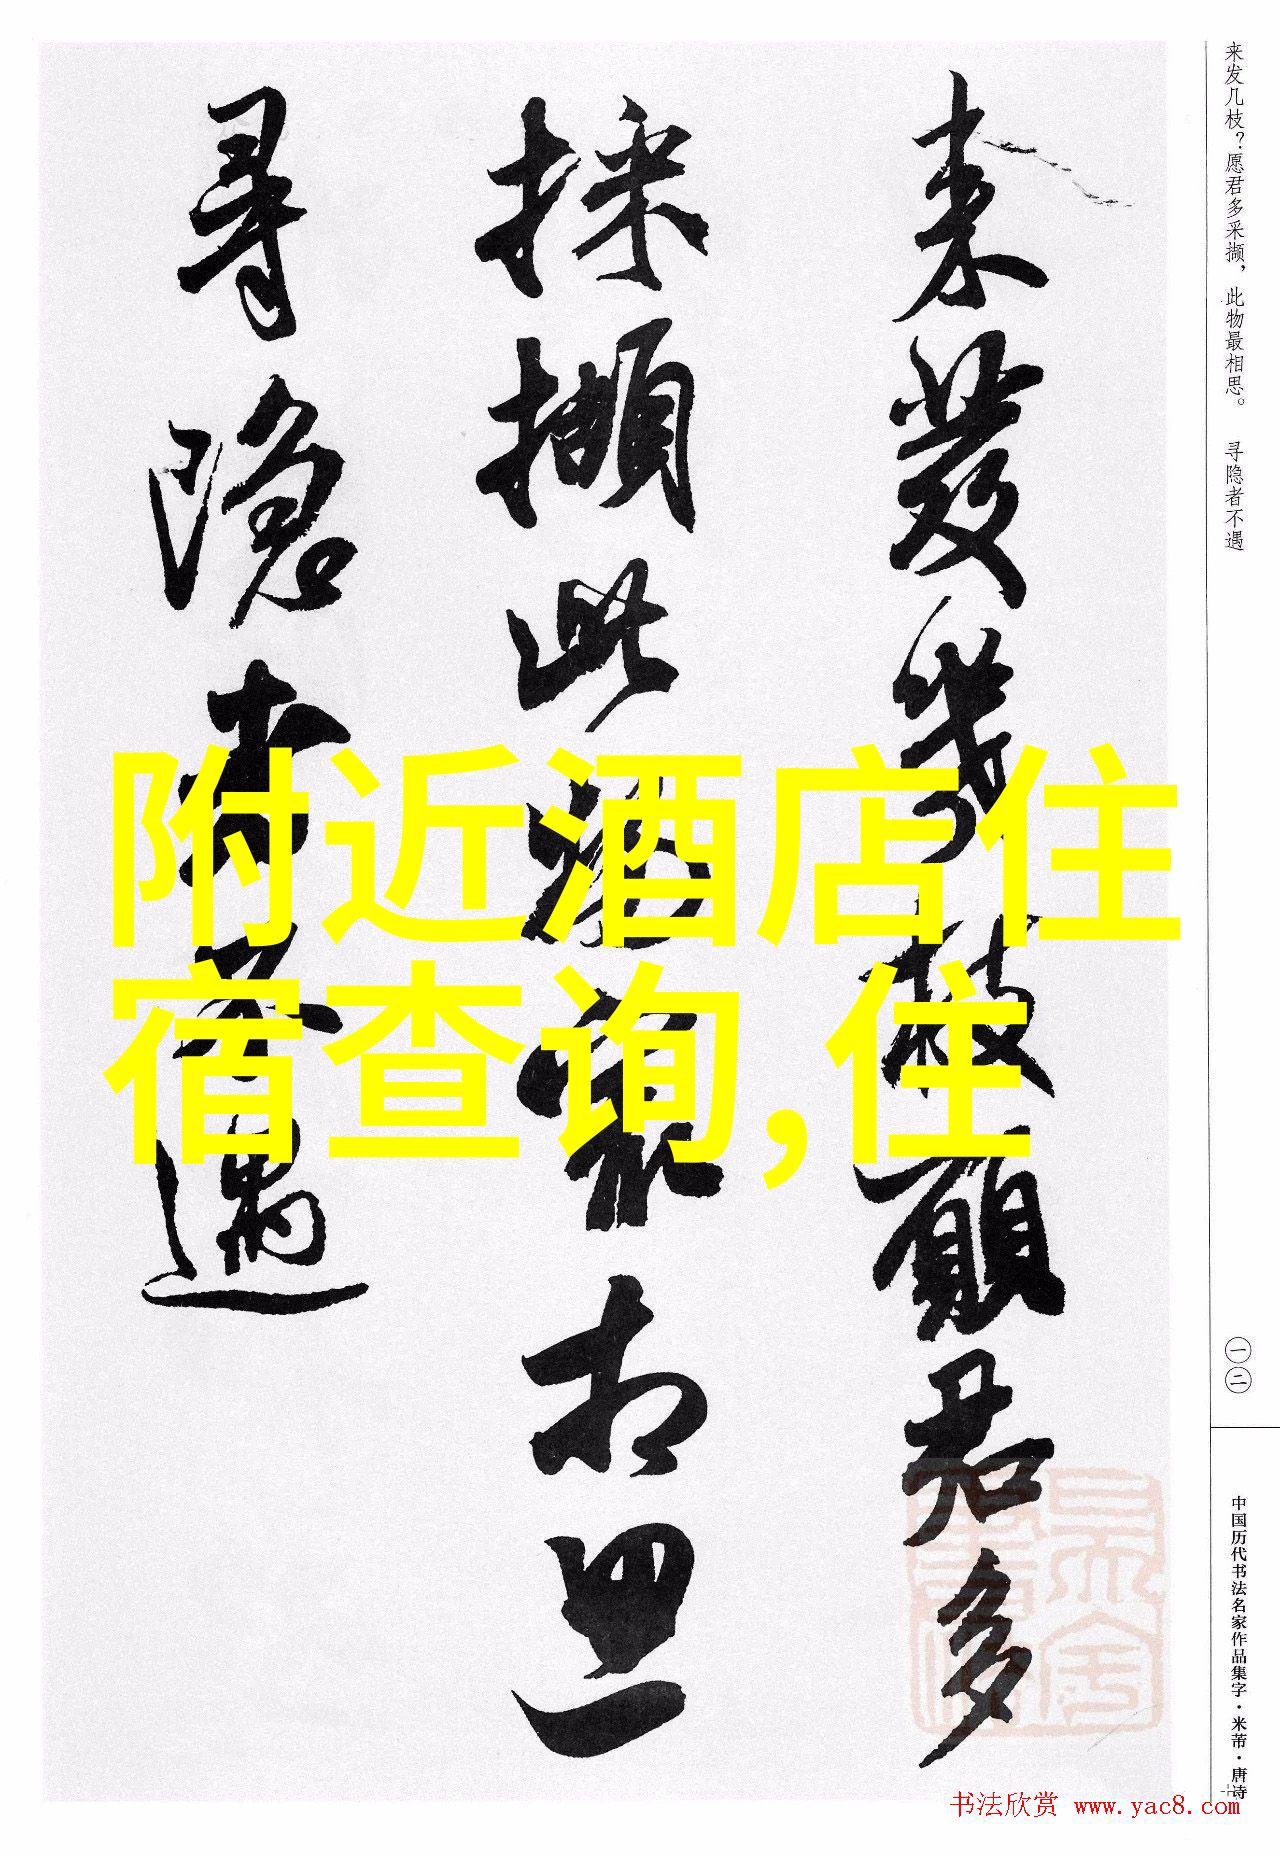 来發幾枝願君多
採擷此物最相思
尋隱者不遇
附近酒店住
宿查询,住
来发几枝？愿君多采撷，此物最相思。 寻隐者不遇
一二
中国历代书法名家作品集字·米芾·唐诗
书法欣赏 www.yac8.com